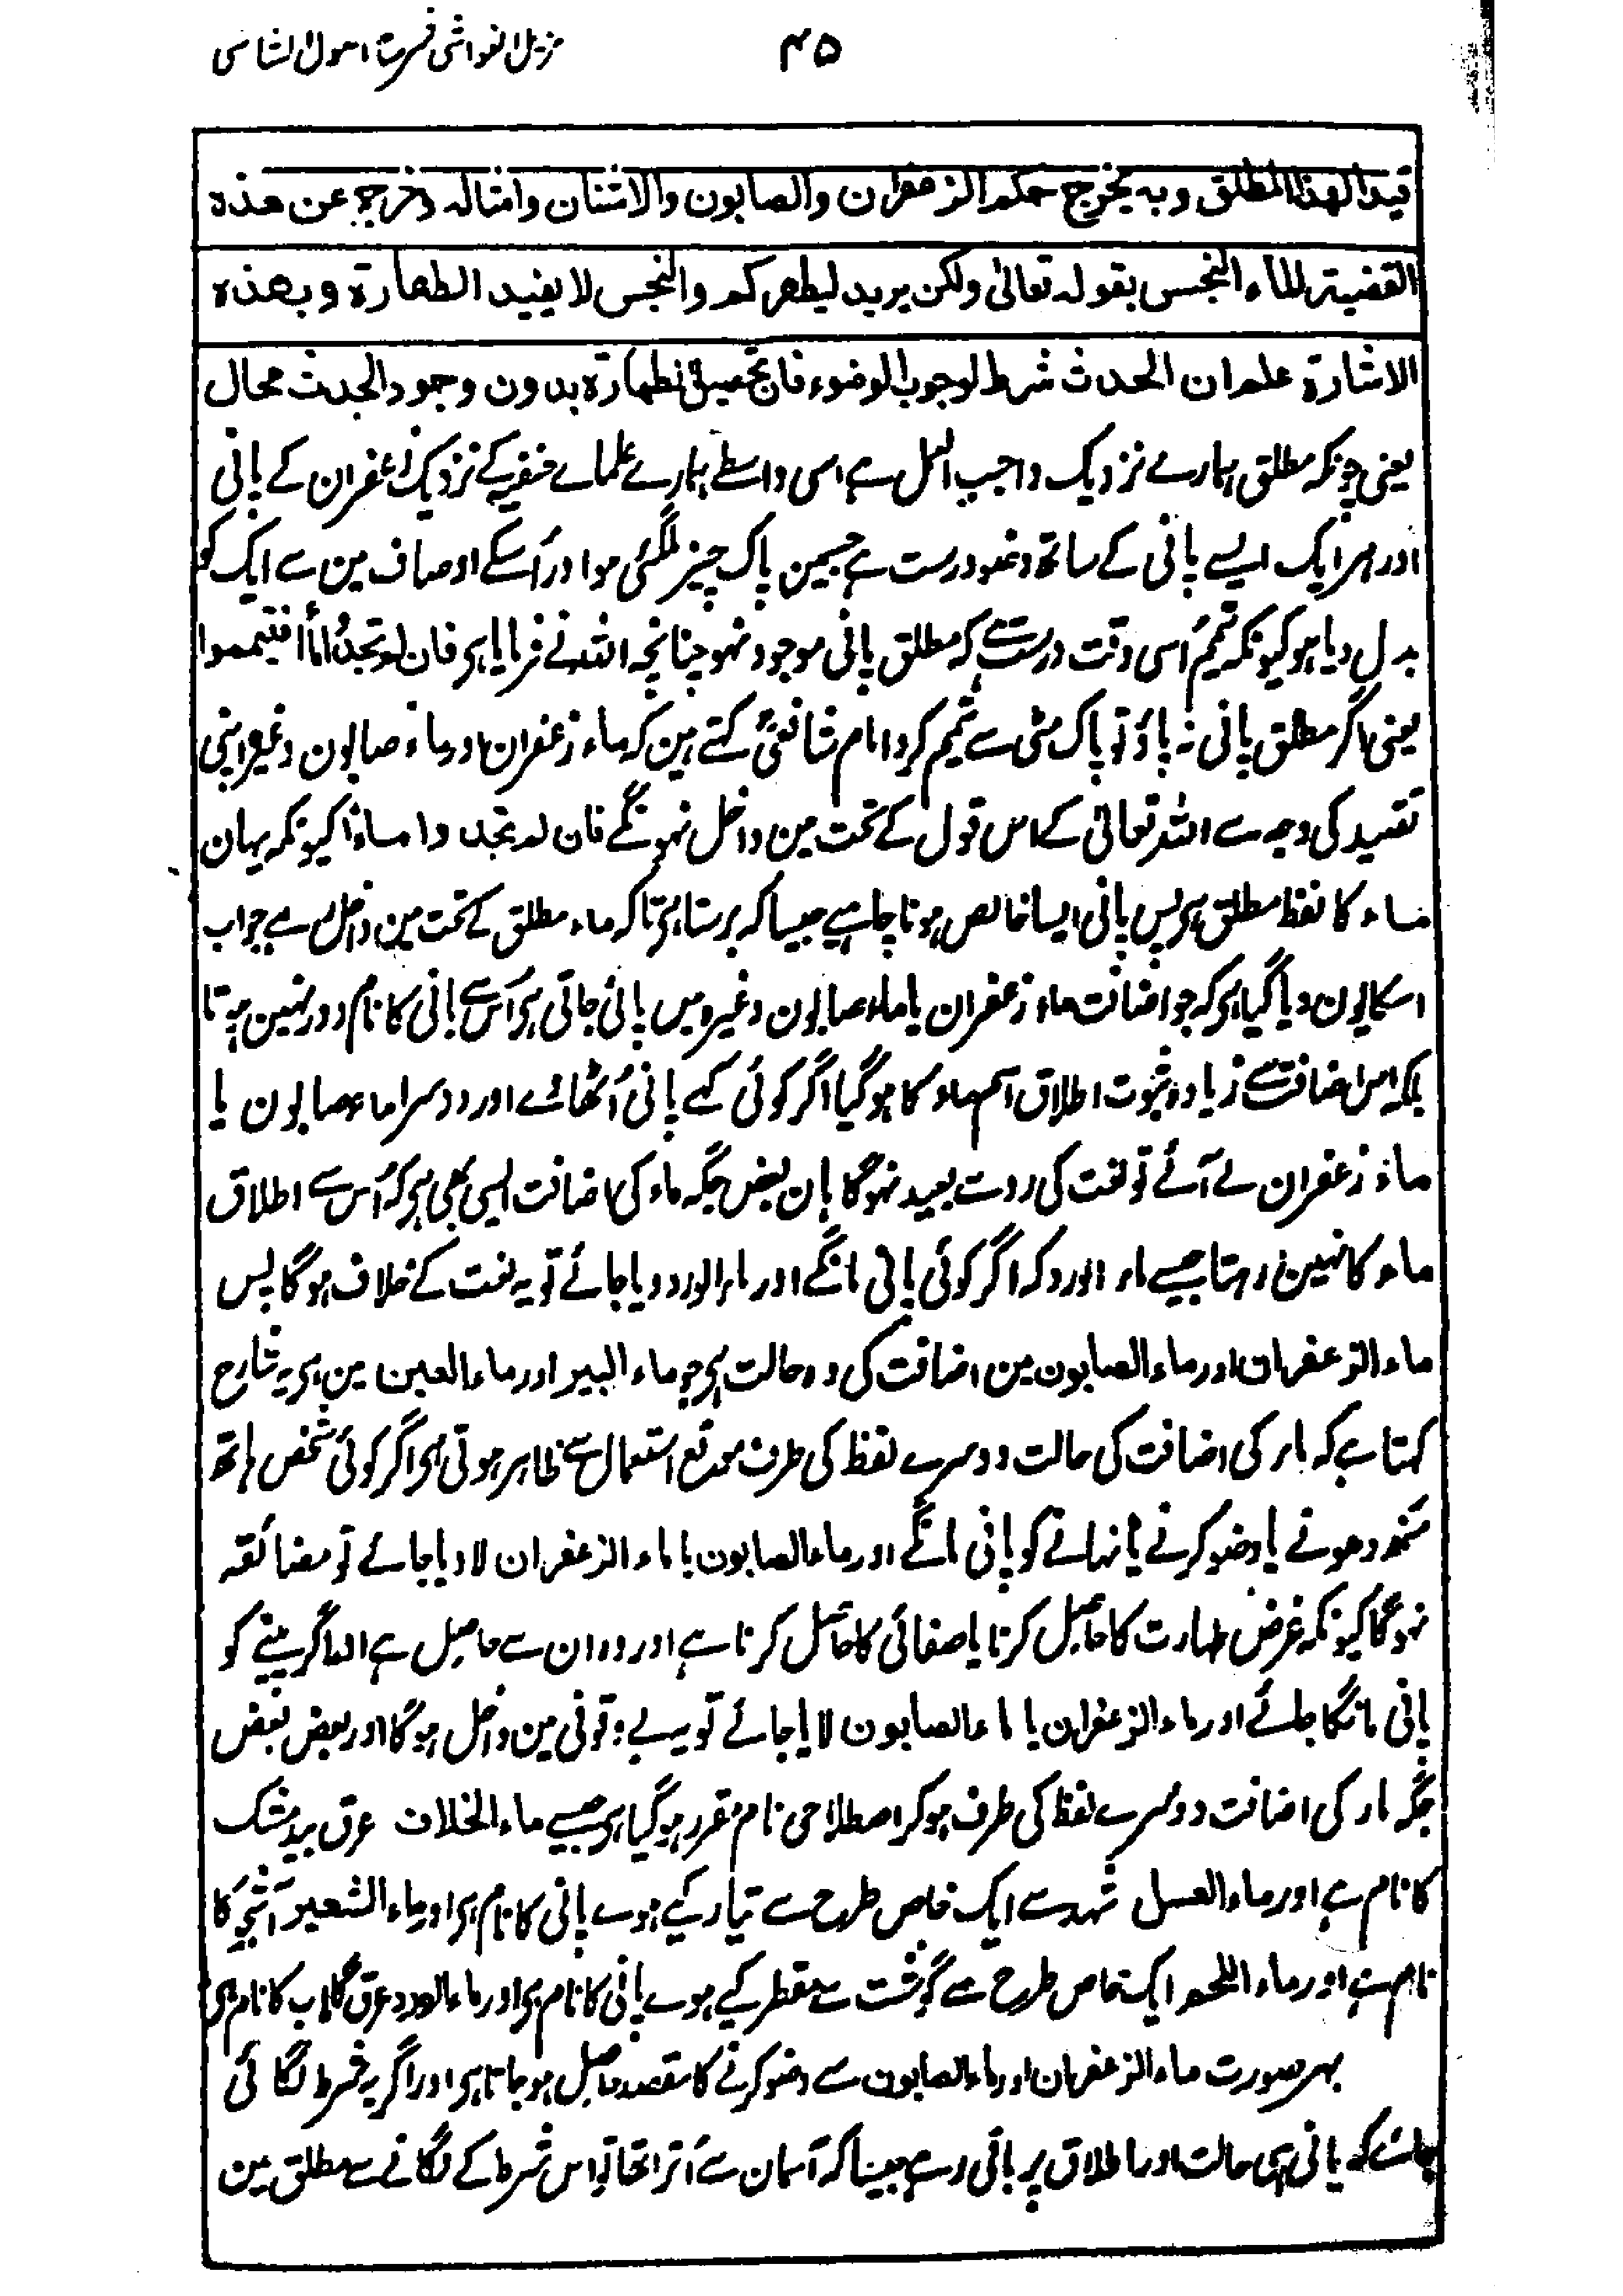 مزیل الغواشی شرح اصول الشاشی
۴۵
قیدا لهذا المطلق وبه یخرج حکم الزعفران والصابون والاشنان وامثاله وخرج عن هذه
القضیة الماء النجس بقوله تعالیٰ ولکن یرید لیطهرکم والنجس لا یفید الطهارة وبهذه
الاشارة علم ان الحدث شرط لوجوب الوضوء فان تحصیل الطهارة بدون وجود الحدث محال
یعنی چونکہ مطلق ہمارے نزدیک واجب العمل ہے اسی واسطے ہمارے علماے حنفیہ کے نزدیک زعفران کے پانی
اور ہر ایک ایسے پانی کے ساتھ وضو درست ہے جسمین پاک چیز ملگئی ہو اور اُسکے اوصاف مین سے ایک کو
بدل دیا ہو کیونکہ تیمم اُسی وقت درست ہے کہ مطلق پانی موجود نہو چنانچہ اللہ نے فرمایا ہے فان لم تجدوا ماءً فتیمموا
یعنی اگر مطلق پانی نہ پاؤ تو پاک مٹی سے تیمم کرو امام شافعیؒ کہتے ہین کہ ماء زعفران اور ماء صابون وغیرہ اپنی
تقیید کی وجہ سے اللہ تعالیٰ کے اس قول کے تحت مین داخل نہونگے فان لم تجدوا ماءً کیونکہ یہان
ماء کا لفظ مطلق ہے پس پانی ایسا خالص ہونا چاہیے جیسا کہ برستا ہے تاکہ ماء مطلق کے تحت مین داخل رہے جواب
اسکا یون دیا گیا ہے کہ جو اضافت ماء زعفران یا ماء صابون وغیرہ میں پائی جاتی ہے اُس سے پانی کا نام دور نہین ہوتا
بلکہ اس اضافت سے زیادہ ثبوت اطلاق اسم ماء کا ہوگیا اگر کوئی کہے پانی اُٹھا لے اور دوسرا ماء صابون یا
ماء زعفران لے آئے تو لغت کی رو سے بعید نہوگا ہان بعض جگہ ماء کی اضافت ایسی بھی ہے کہ اُس سے اطلاق
ماء کا نہین رہتا جیسے ماء الورد کہ اگر کوئی پانی مانگے اور ماء الورد دیا جائے تو یہ لغت کے خلاف ہوگا پس
ماء الزعفران اور ماء الصابون مین اضافت کی وہ حالت ہے جو ماء البیر اور ماء العین مین ہے یہ شارح
کہتا ہے کہ ماء کی اضافت کی حالت دوسرے لفظ کی طرف موقع استعمال سے ظاہر ہوتی ہے اگر کوئی شخص ہاتھ
منھ دھونے یا وضو کرنے یا نہانے کو پانی مانگے اور ماء الصابون یا ماء الزعفران لا دیا جائے تو مضائقہ
نہوگا کیونکہ غرض طہارت کا حاصل کرنا یا صفائی کا حاصل کرنا ہے اور وہ ان سے حاصل ہے اور اگر پینے کو
پانی مانگا جائے اور ماء الزعفران یا ماء الصابون لایا جائے تو یہ بے وقوفی مین داخل ہوگا اور بعض بعض
جگہ ماء کی اضافت دوسرے لفظ کی طرف ہو کر اصطلاحی نام مقرر ہوگیا ہے جیسے ماء الخلاف عرق بید مشک
کا نام ہے اور ماء العسل شہد سے ایک خاص طرح سے تیار کیے ہوے پانی کا نام ہے اور ماء الشعیر آشجو کا
نام ہے اور ماء اللحم ایک خاص طرح سے گوشت سے مقطر کیے ہوے پانی کا نام ہے اور ماء الورد عرق گلاب کا نام ہے
بہر صورت ماء الزعفران اور ماء الصابون سے وضو کرنے کا مقصد حاصل ہو جاتا ہے اور اگر یہ شرط لگائی
جائے کہ پانی اسی حالت اور اطلاق پر باقی رہے جیسا کہ آسمان سے اُترا تھا تو اس شرط کے لگانے سے مطلق مین